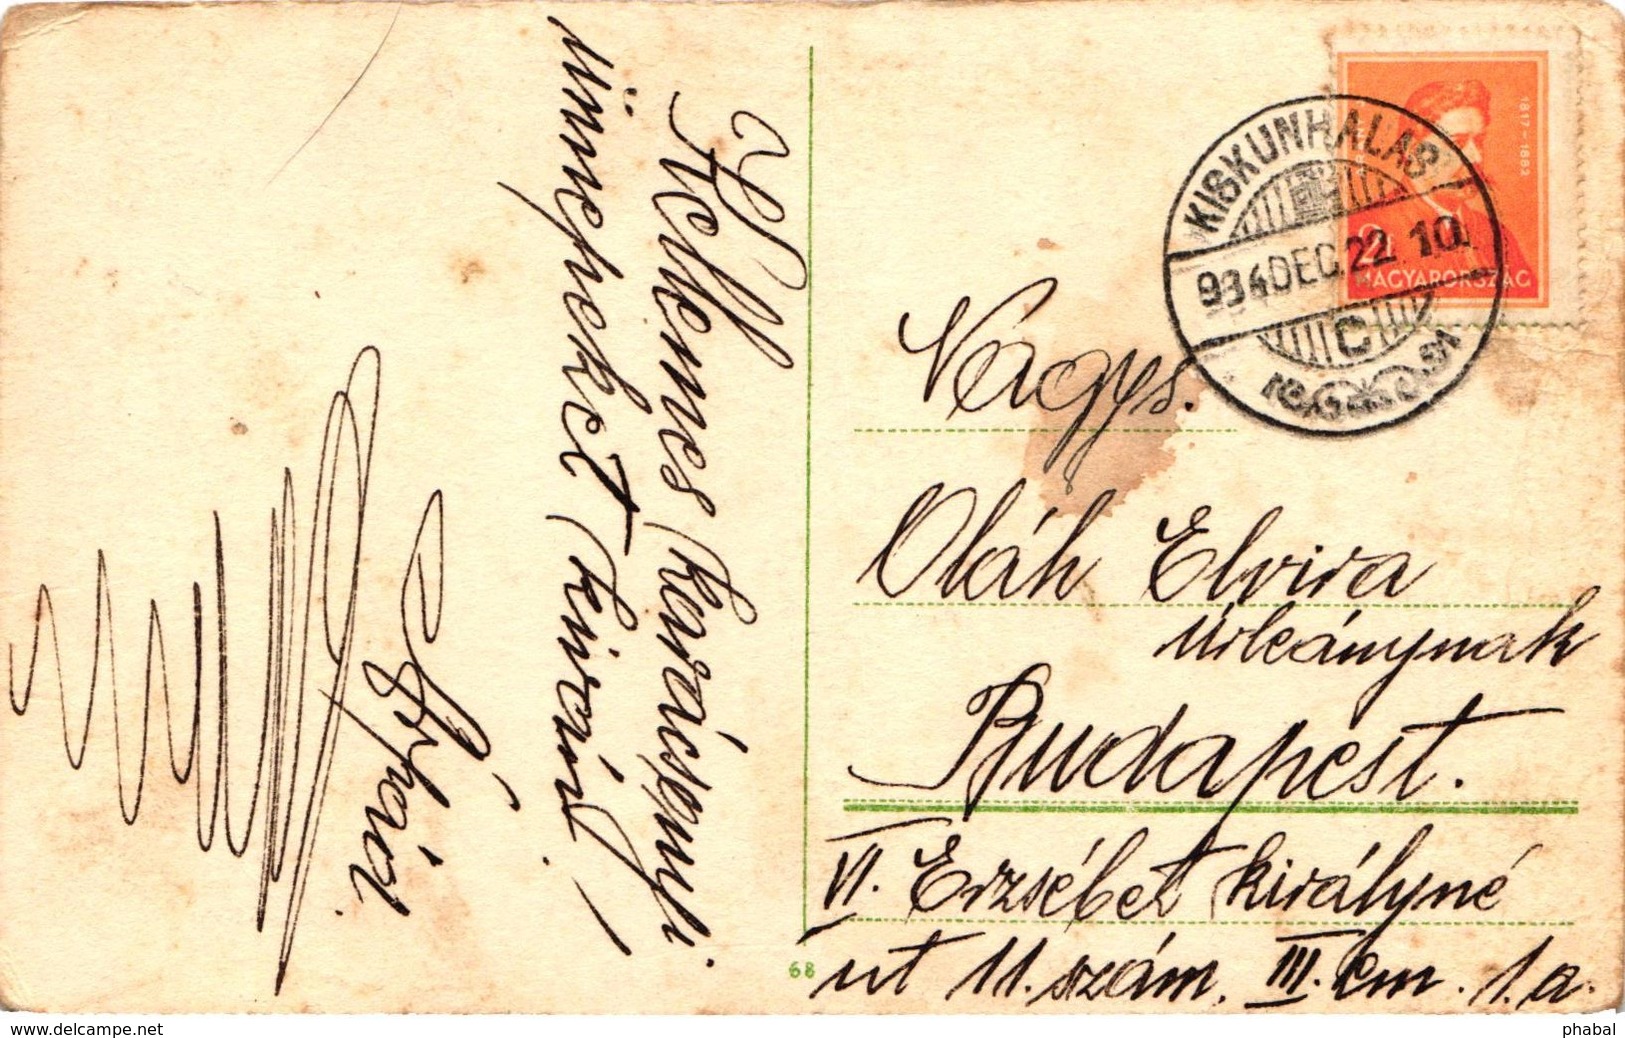 Kellemes karácsonyi
ünnepeket kíván!
Árpád.
KISKUNHALAS
934 DEC. 22. 10
C
1817-1882
2f
MAGYARORSZÁG
Nagys.
Oláh Elvira
úrleánynak
Budapest.
VI. Erzsébet királyné
út 11. szám. III. em. 1. a.
68
www.delcampe.net
phabal